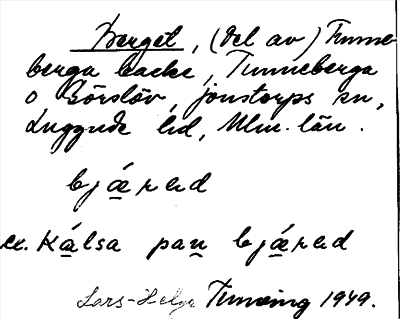 Berget, (del av) Tunne-
berga backe, Tunneberga
o Görslöv, Jonstorps sn,
Luggude hd, Mlm. län.
bjæ̱rəd
ex. Ká̱lsa pau̱ bjæ̱rəd
Lars-Helge Tunving 1949.